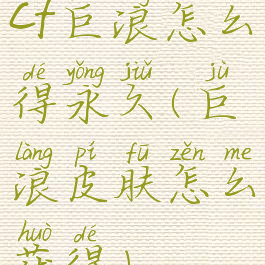 cf巨浪怎么
dé yǒng jiǔ jù
得永久(巨
làng pí fū zěn me
浪皮肤怎么
huò dé
获得)